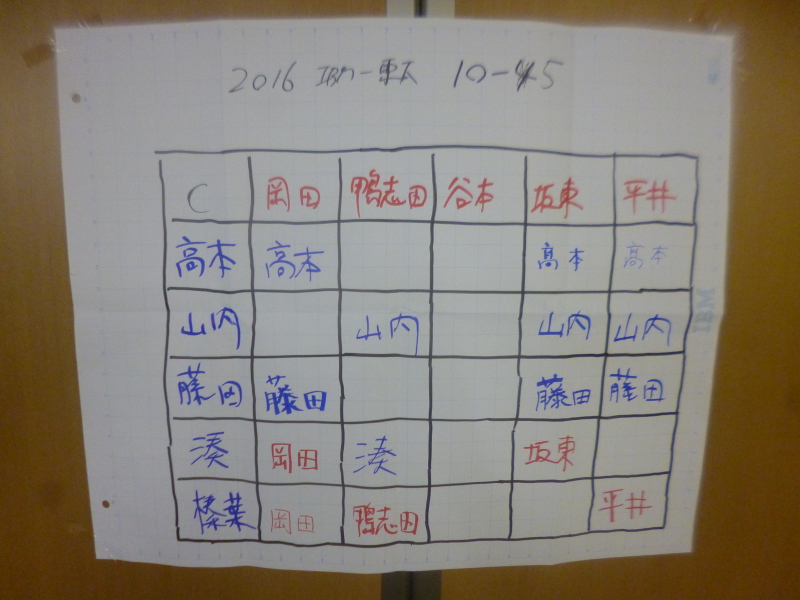 2016 IBM一東工 10-45
C 岡田 鴨志田 谷本 坂東 平井
高本 高本 高本 高本
山内 山内 山内 山内
藤田 藤田 藤田 藤田
湊 岡田 湊 坂東
榛葉 岡田 鴨志田 平井
IBM